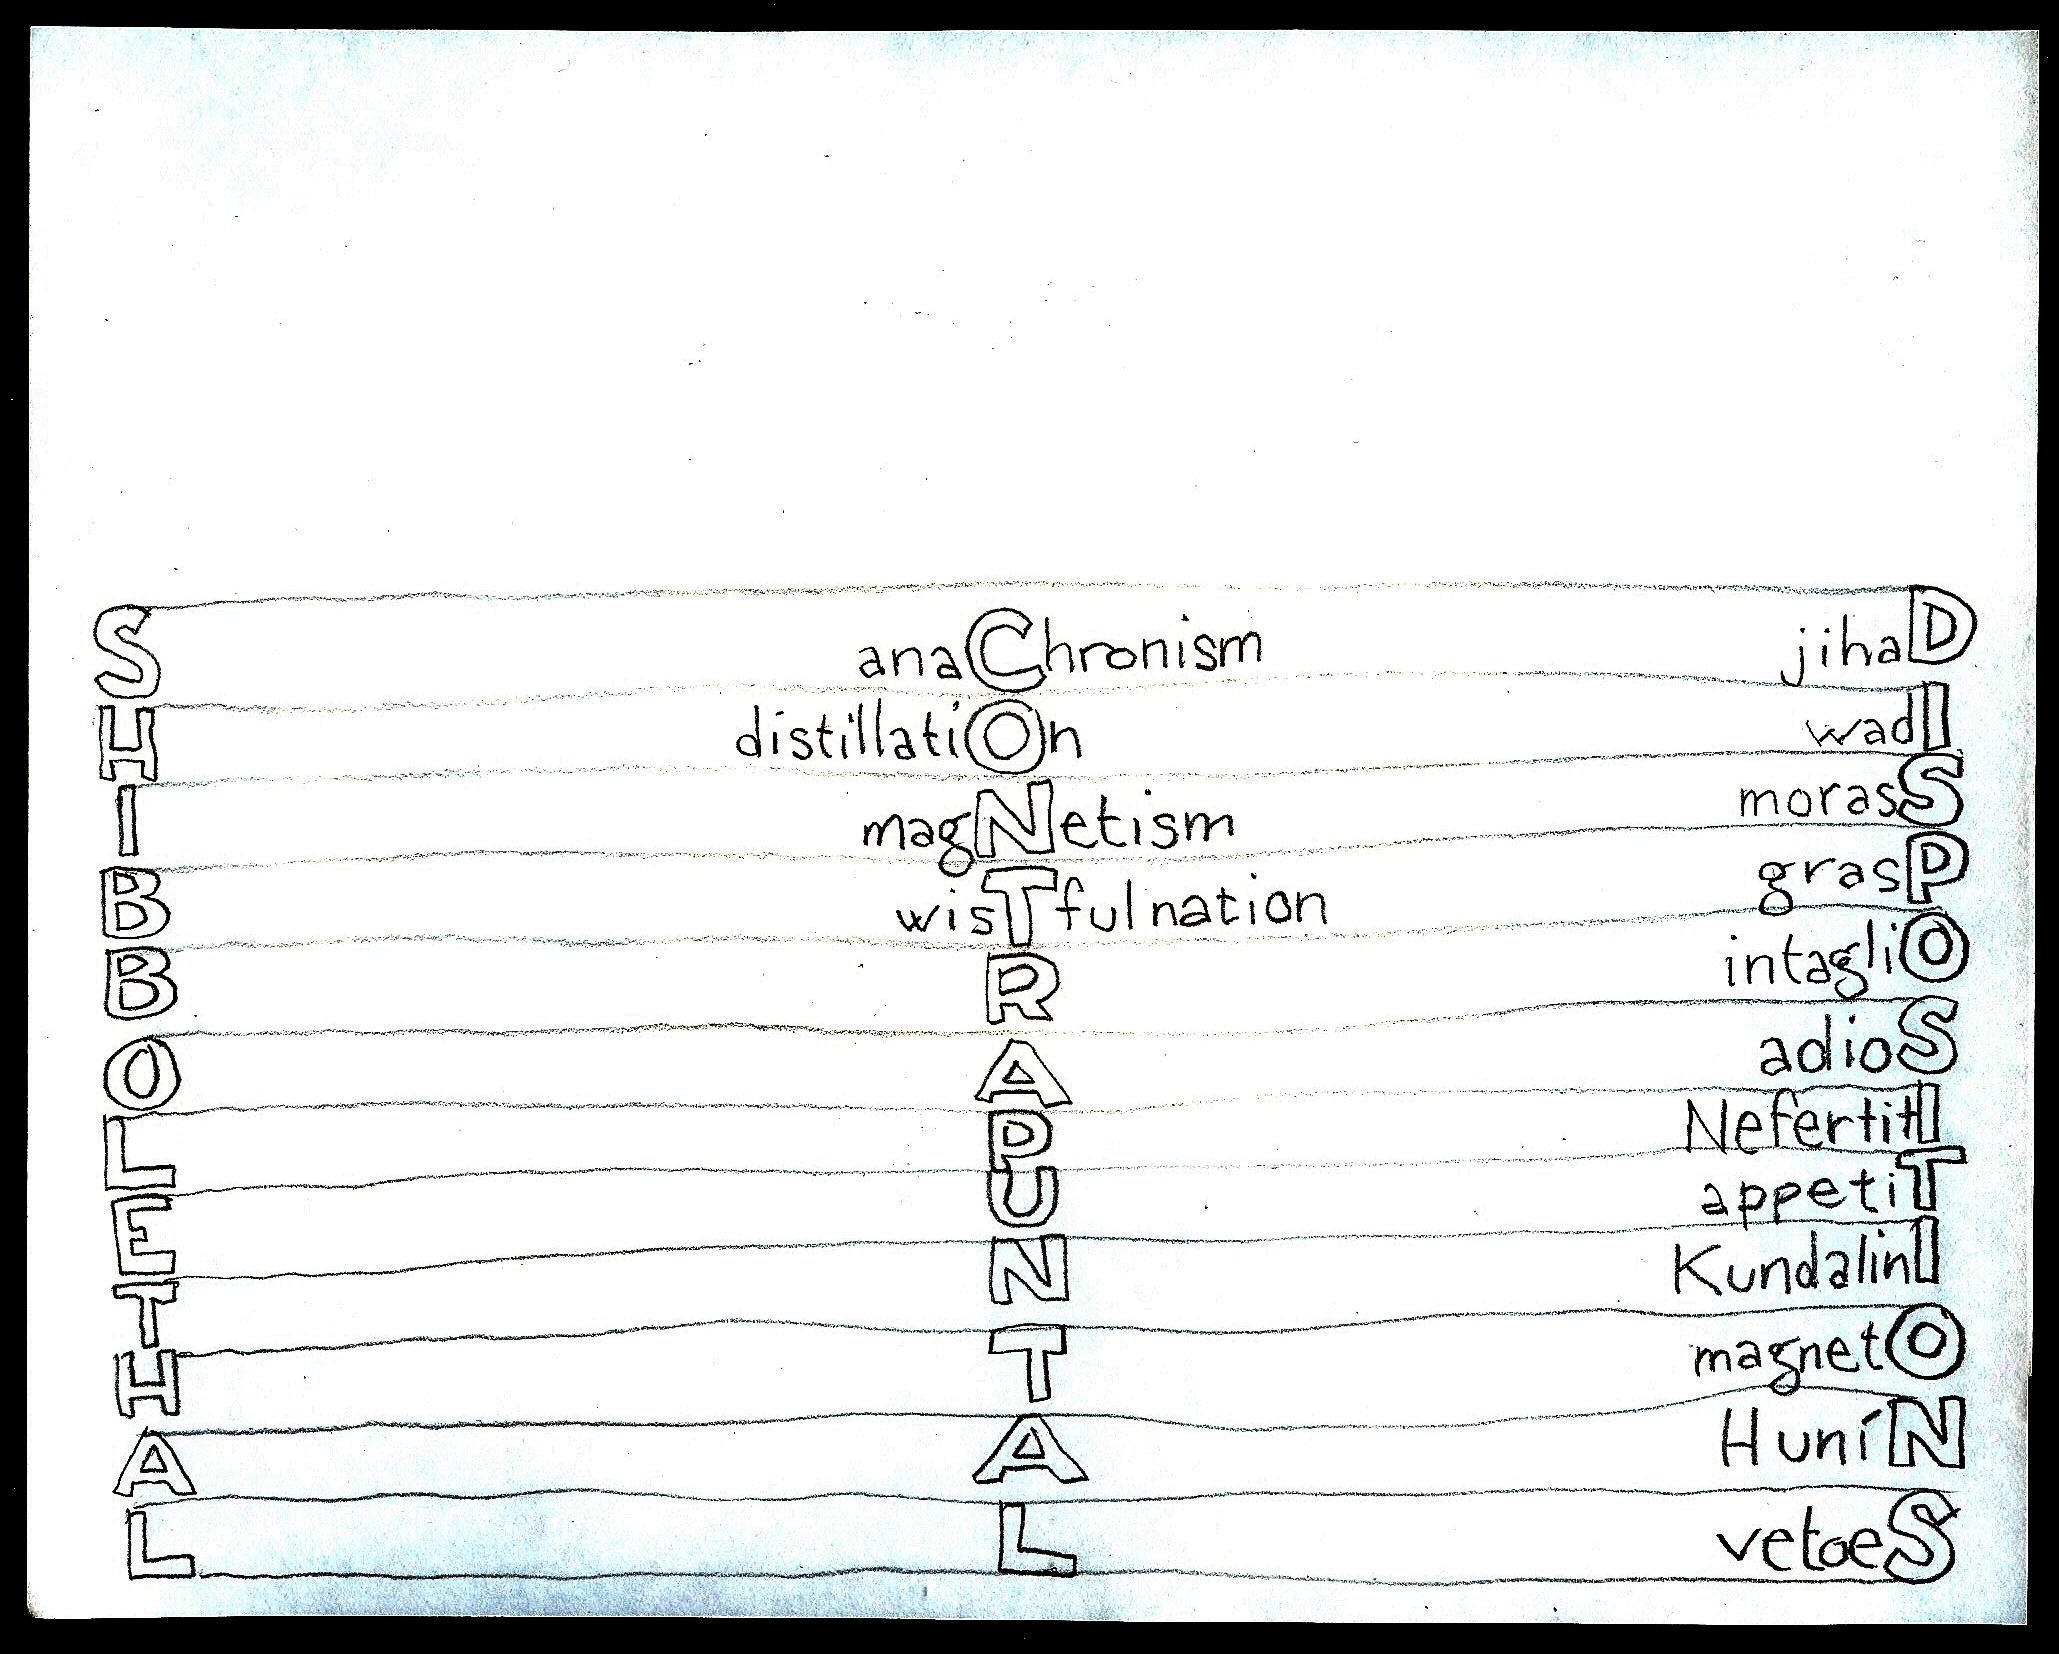 S anaChronism jihaD
H distillatiOn wadI
I magNetism morasS
B wisTful nation grasP
B R intagliO
O A adioS
L P NefertitI
E U appetiT
T N KundalinI
H T magnetO
A A HuníN
L L vetoeS